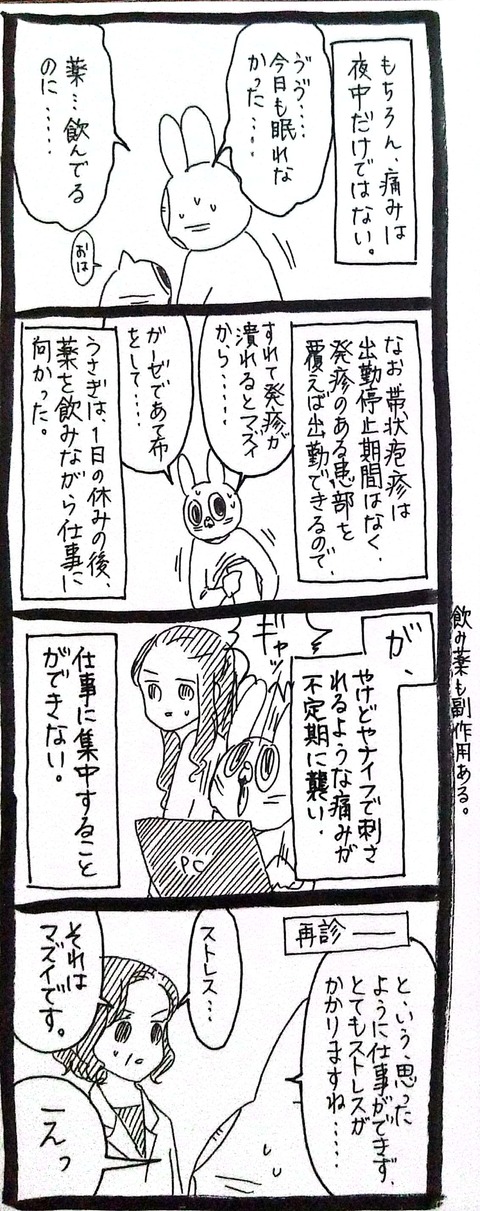 もちろん、痛みは
夜中だけではない。
ゔゔ‥‥
今日も眠れな
かった‥‥
薬…飲んでる
のに‥‥‥
おは
なお帯状疱疹は
出勤停止期間はなく、
発疹のある患部を
覆えば出勤できるので、
すれて発疹が
潰れるとマズイ
から‥‥‥
ガーゼであて布
をして‥‥
うさぎは、1日の休みの後、
薬を飲みながら仕事に
向かった。
飲み薬も副作用ある。
が、
やけどやナイフで刺さ
れるような痛みが
不定期に襲い、
ギャッ
仕事に集中すること
ができない。
PC
再診――
と、いう、思った
ように仕事ができず、
とてもストレスが
かかりますね‥‥‥
ストレス…
それは
マズイです。
えっ